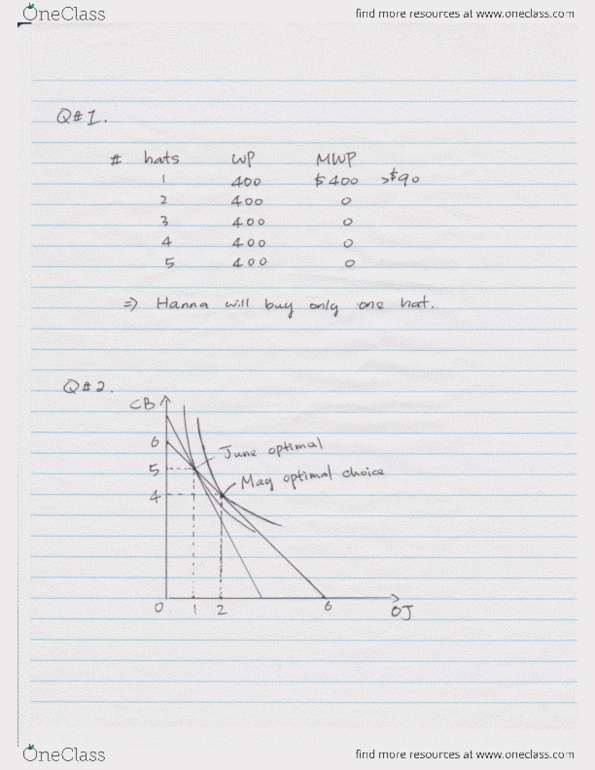 OneClass find more resources at www.oneclass.com
Q#1.
# hats WP MWP
1 400 $400 >$90
2 400 0
3 400 0
4 400 0
5 400 0
=) Hanna will buy only one hat.
Q#2.
CB
6
June optimal
5
May optimal choice
4
0 1 2 6 OJ
OneClass find more resources at www.oneclass.com